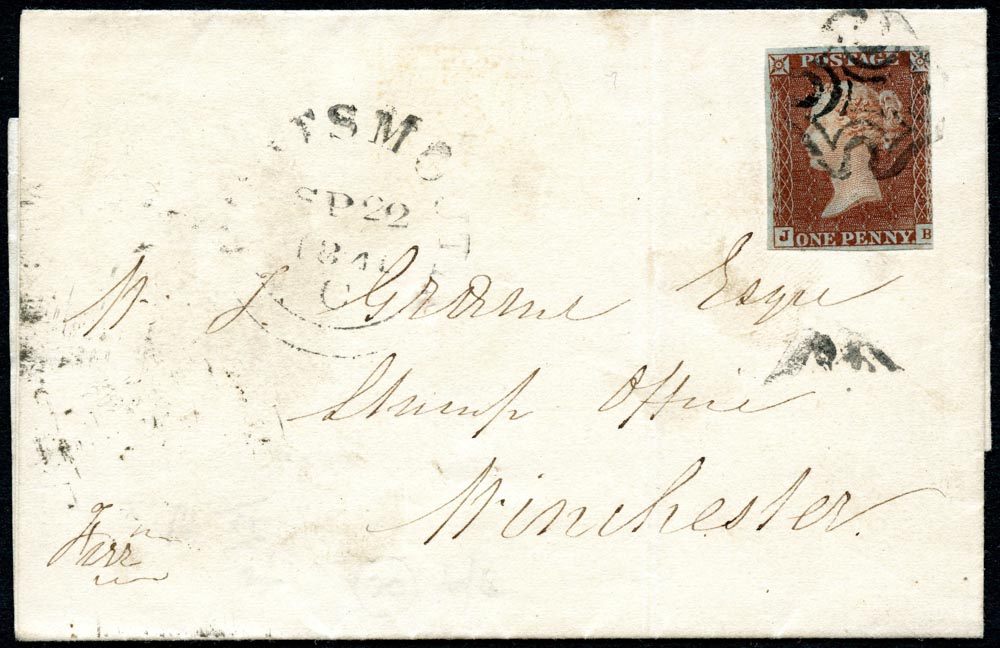 POSTAGE
J ONE PENNY B
TSMO
SP 22
W. J. Graeme Esqre
Stamp Office
Winchester